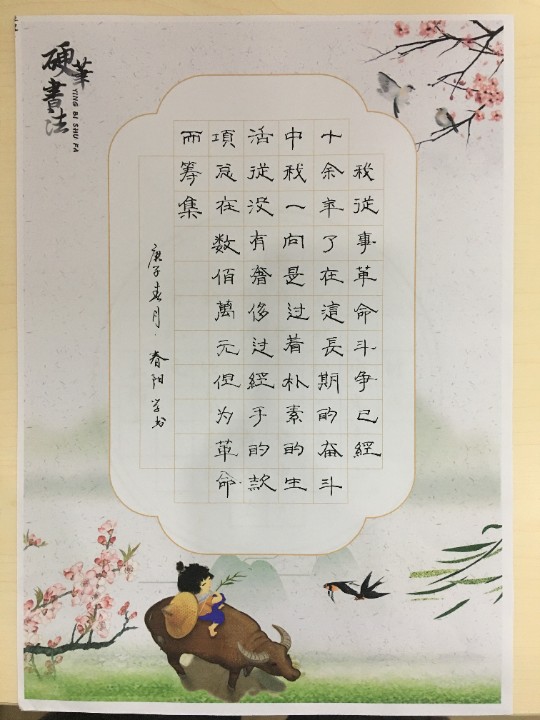 硬筆書法
YING BI SHU FA
我從事革命斗争已經
十余年了在這長期的奋斗
中我一向是过着朴素的生
活從没有奢侈过經手的款
項总在数佰萬元但为革命
而筹集
庚子春月·春阳学书